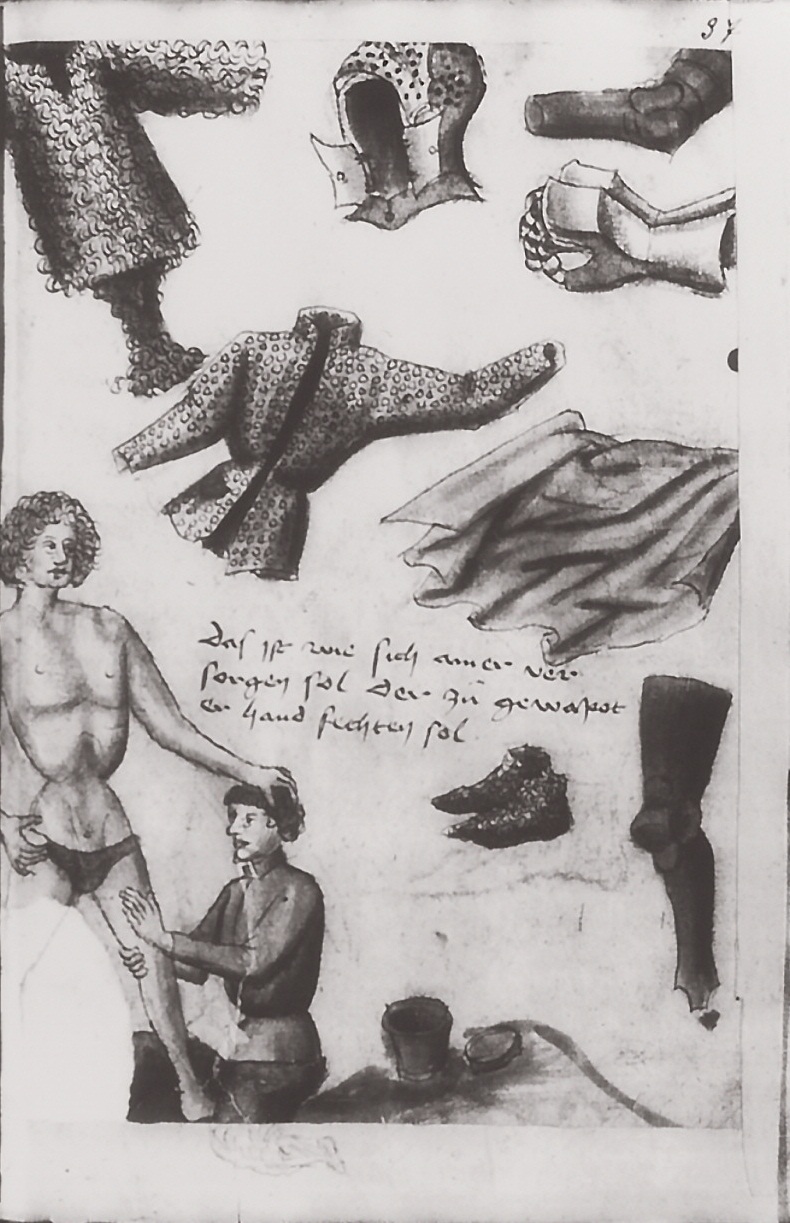 37
Das ist wie sich ainer ver
sorgen sol der zů gewapot
er hand fechten sol